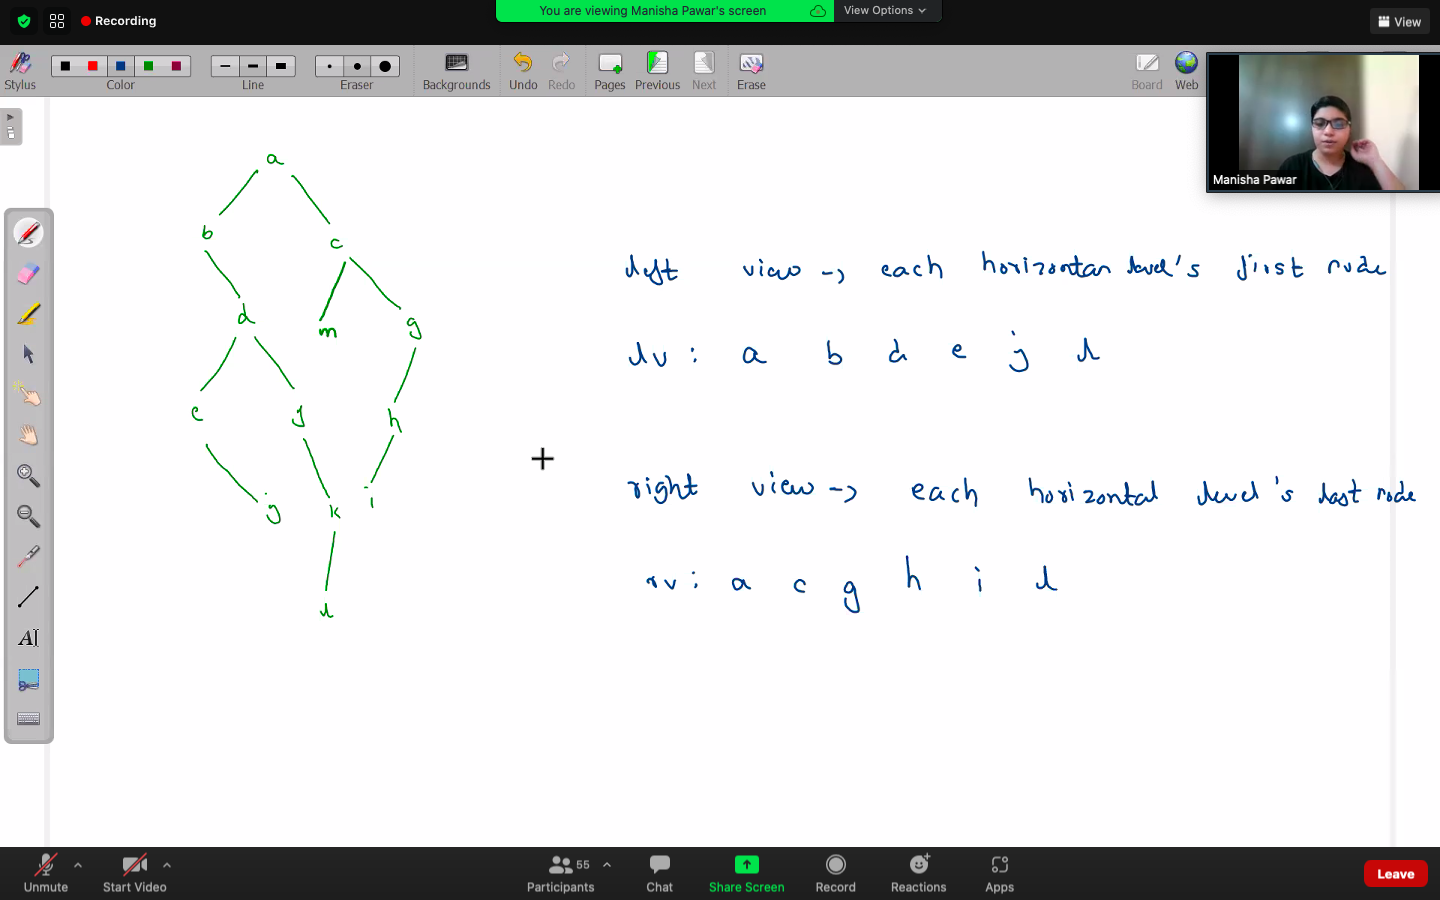 Recording
You are viewing Manisha Pawar's screen
View Options
View
Stylus
Color
Line
Eraser
Backgrounds
Undo
Redo
Pages
Previous
Next
Erase
Board
Web
Manisha Pawar
a
b c
d m g
e f h
j k i
l
left view -> each horizontan level's first node
lv : a b d e j l
right view -> each horizontal level's last node
rv : a c g h i l
A
Unmute
Start Video
Participants
55
Chat
Share Screen
Record
Reactions
Apps
Leave